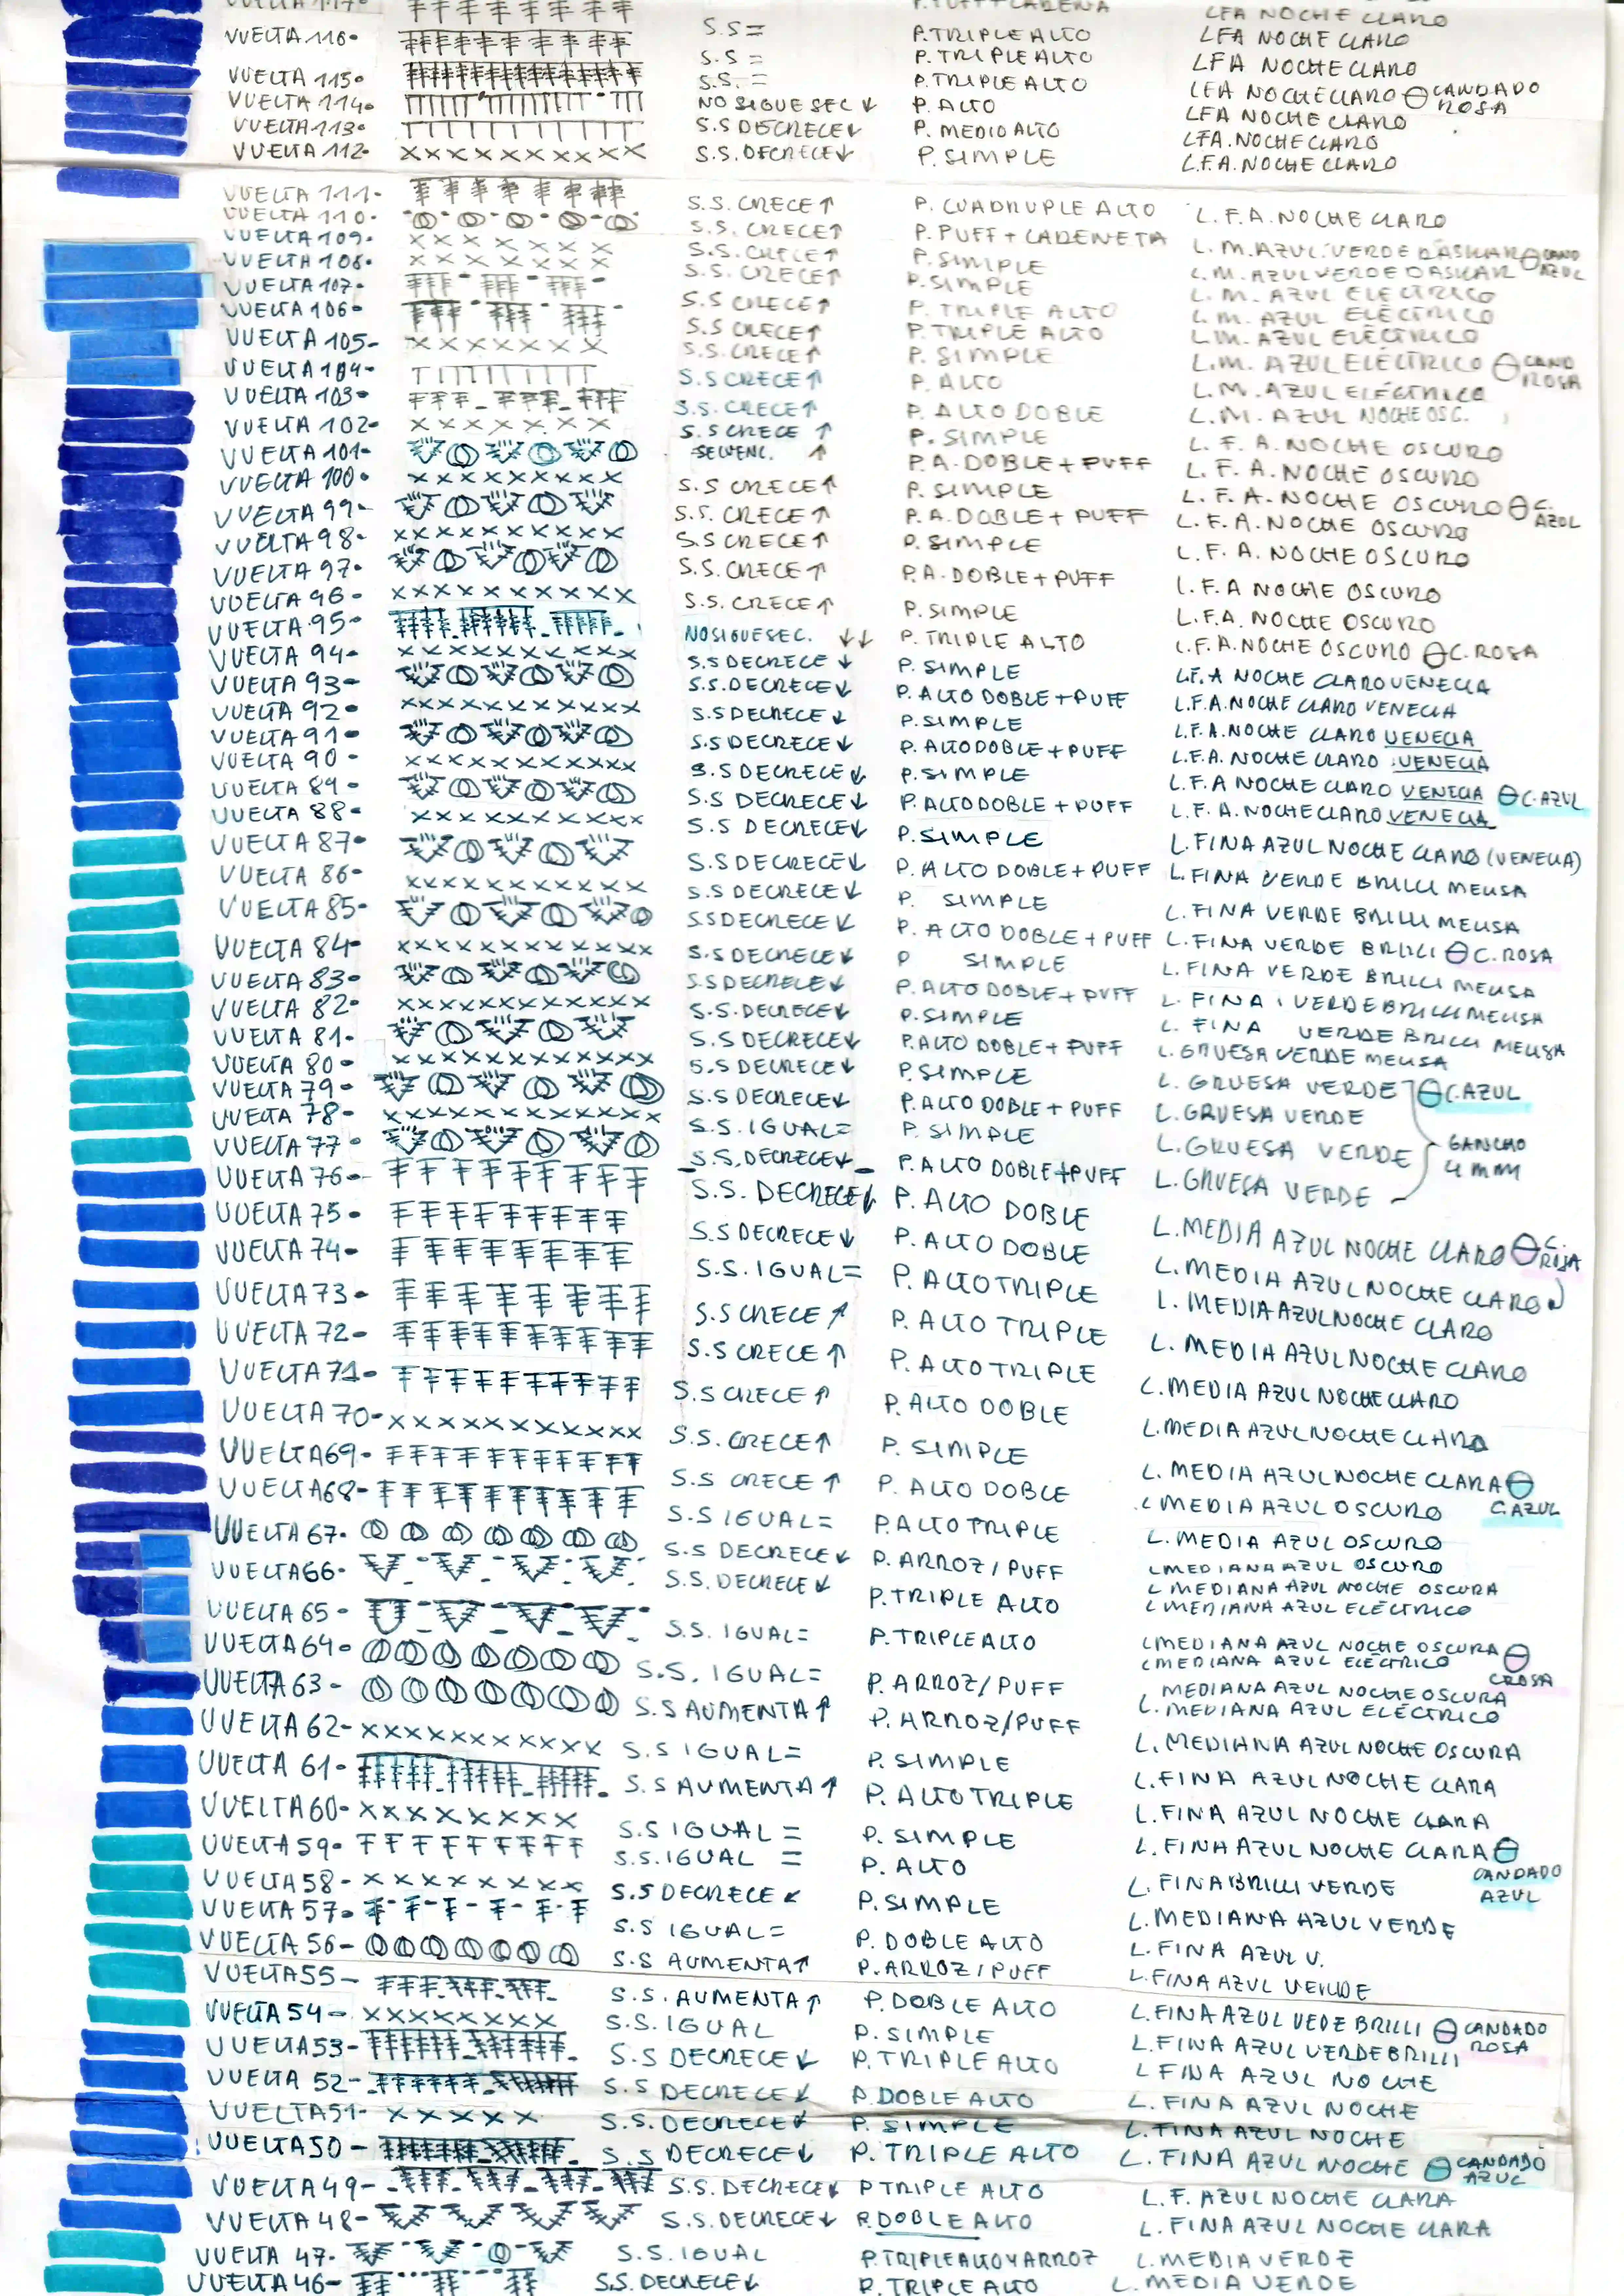 VUELTA 117-
P. PUFF + CADENA
LFA NOCHE CLARO
VUELTA 116- S.S = P. TRIPLE ALTO LFA NOCHE CLARO
S.S = P. TRIPLE ALTO LFA NOCHE CLARO
VUELTA 115- S.S. = P. TRIPLE ALTO LFA NOCHE CLARO CANDADO ROSA
VUELTA 114- NO SIGUE SEC ↓ P. ALTO LFA NOCHE CLARO
VUELTA 113- S.S DECRECE↓ P. MEDIO ALTO LFA. NOCHE CLARO
VUELTA 112- XXXXXXXXXX S.S. DECRECE↓ P. SIMPLE L.F.A. NOCHE CLARO
VUELTA 111- S.S. CRECE↑ P. CUADRUPLE ALTO L.F.A. NOCHE CLARO
VUELTA 110- S.S. CRECE↑ P. PUFF + CADENETA L.M. AZUL VERDE DASKAR CAND AZUL
VUELTA 109- XXXXXXX S.S. CRECE↑ P. SIMPLE L.M. AZUL VERDE DASKAR
VUELTA 108- XXXXXXX S.S. CRECE↑ P. SIMPLE L.M. AZUL ELECTRICO
VUELTA 107- S.S CRECE↑ P. TRIPLE ALTO L.M. AZUL ELÉCTRICO
VUELTA 106- S.S CRECE↑ P. TRIPLE ALTO L.M. AZUL ELÉCTRICO
VUELTA 105- XXXXXXX S.S. CRECE↑ P. SIMPLE L.M. AZUL ELECTRICO CAND ROSA
VUELTA 104- S.S CRECE↑ P. ALTO L.M. AZUL ELÉCTRICO
VUELTA 103- S.S. CRECE↑ P. ALTO DOBLE L.M. AZUL NOCHE OSC.
VUELTA 102- XXXXXXX S.S CRECE ↑ P. SIMPLE L.F.A. NOCHE OSCURO
VUELTA 101- SECUENC. ↑ P.A. DOBLE + PUFF L.F.A. NOCHE OSCURO
VUELTA 100- XXXXXXXXX S.S CRECE↑ P. SIMPLE L.F.A. NOCHE OSCURO C. AZUL
VUELTA 99- S.S. CRECE↑ P.A. DOBLE + PUFF L.F.A. NOCHE OSCURO
VUELTA 98- XXXXXXXXX S.S CRECE↑ P. SIMPLE L.F.A. NOCHE OSCURO
VUELTA 97- S.S. CRECE↑ P.A. DOBLE + PUFF L.F.A NOCHE OSCURO
VUELTA 96- XXXXXXXXX S.S. CRECE↑ P. SIMPLE L.F.A. NOCHE OSCURO
VUELTA 95- NO SIGUE SEC. ↓↓ P. TRIPLE ALTO L.F.A. NOCHE OSCURO C. ROSA
VUELTA 94- XXXXXXXXXX S.S DECRECE ↓ P. SIMPLE L.F.A NOCHE CLARO VENECIA
VUELTA 93- S.S. DECRECE↓ P. ALTO DOBLE + PUFF L.F.A. NOCHE CLARO VENECIA
VUELTA 92- XXXXXXXXXX S.S DECRECE↓ P. SIMPLE L.F.A. NOCHE CLARO VENECIA
VUELTA 91- S.S DECRECE↓ P. ALTO DOBLE + PUFF L.F.A. NOCHE CLARO VENECIA
VUELTA 90- XXXXXXXXXX S.S DECRECE↓ P. SIMPLE L.F.A NOCHE CLARO VENECIA C. AZUL
VUELTA 89- S.S DECRECE↓ P. ALTO DOBLE + PUFF L.F.A. NOCHE CLARO VENECIA
VUELTA 88- XXXXXXXXXX S.S DECRECE↓ P. SIMPLE L. FINA AZUL NOCHE CLARO (VENECIA)
VUELTA 87- S.S DECRECE↓ P. ALTO DOBLE + PUFF L. FINA VERDE BRILLI MELISA
VUELTA 86- XXXXXXXXXX S.S DECRECE↓ P. SIMPLE L. FINA VERDE BRILLI MELISA
VUELTA 85- S.S DECRECE↓ P. ALTO DOBLE + PUFF L. FINA VERDE BRILLI C. ROSA
VUELTA 84- XXXXXXXXXXX S.S DECRECE↓ P SIMPLE L. FINA VERDE BRILLI MELISA
VUELTA 83- S.S DECRECE↓ P. ALTO DOBLE + PUFF L. FINA VERDE BRILLI MELISA
VUELTA 82- XXXXXXXXXXX S.S. DECRECE↓ P. SIMPLE L. FINA VERDE BRILLI MELISA
VUELTA 81- S.S DECRECE↓ P. ALTO DOBLE + PUFF L. GRUESA VERDE MELISA
VUELTA 80- XXXXXXXXXXX S.S DECRECE↓ P. SIMPLE L. GRUESA VERDE C. AZUL
VUELTA 79- S.S DECRECE↓ P. ALTO DOBLE + PUFF L. GRUESA VERDE
VUELTA 78- XXXXXXXXXXXX S.S. IGUAL= P. SIMPLE L. GRUESA VERDE GANCHO 4 MM
VUELTA 77- S.S. DECRECE↓ P. ALTO DOBLE + PUFF L. GRUESA VERDE
VUELTA 76- S.S. DECRECE↓ P. ALTO DOBLE L. MEDIA AZUL NOCHE CLARO C. ROSA
VUELTA 75- S.S DECRECE↓ P. ALTO DOBLE L. MEDIA AZUL NOCHE CLARO
VUELTA 74- S.S. IGUAL= P. ALTO TRIPLE L. MEDIA AZUL NOCHE CLARO
VUELTA 73- S.S CRECE↑ P. ALTO TRIPLE L. MEDIA AZUL NOCHE CLARO
VUELTA 72- S.S CRECE↑ P. ALTO TRIPLE L. MEDIA AZUL NOCHE CLARO
VUELTA 71- S.S CRECE↑ P. ALTO DOBLE L. MEDIA AZUL NOCHE CLARA
VUELTA 70- XXXXXXXXXXX S.S. CRECE↑ P. SIMPLE L. MEDIA AZUL NOCHE CLARA C. AZUL
VUELTA 69- S.S CRECE↑ P. ALTO DOBLE L MEDIA AZUL OSCURO
VUELTA 68- S.S IGUAL= P. ALTO TRIPLE L. MEDIA AZUL OSCURO
VUELTA 67- S.S DECRECE↓ P. ARROZ / PUFF L MEDIANA AZUL OSCURO
VUELTA 66- S.S. DECRECE↓ P. TRIPLE ALTO L MEDIANA AZUL NOCHE OSCURA
L MEDIANA AZUL ELÉCTRICO
VUELTA 65- S.S. IGUAL= P. TRIPLE ALTO L MEDIANA AZUL NOCHE OSCURA
L MEDIANA AZUL ELÉCTRICO C ROSA
VUELTA 64- S.S. IGUAL= P. ARROZ / PUFF MEDIANA AZUL NOCHE OSCURA
L. MEDIANA AZUL ELÉCTRICO
VUELTA 63- S.S AUMENTA↑ P. ARROZ / PUFF L. MEDIANA AZUL NOCHE OSCURA
VUELTA 62- XXXXXXXXXXX S.S IGUAL= P. SIMPLE L. FINA AZUL NOCHE CLARA
VUELTA 61- S.S AUMENTA↑ P. ALTO TRIPLE L. FINA AZUL NOCHE CLARA
VUELTA 60- XXXXXXXX S.S IGUAL = P. SIMPLE L. FINA AZUL NOCHE CLARA CANDADO AZUL
VUELTA 59- S.S. IGUAL = P. ALTO L. FINA BRILLI VERDE
VUELTA 58- XXXXXXXX S.S DECRECE↓ P. SIMPLE L. MEDIANA AZUL VERDE
VUELTA 57- S.S IGUAL= P. DOBLE ALTO L. FINA AZUL V.
VUELTA 56- S.S AUMENTA↑ P. ARROZ / PUFF L. FINA AZUL VERDE
VUELTA 55- S.S. AUMENTA↑ P. DOBLE ALTO L. FINA AZUL VEDE BRILLI CANDADO ROSA
VUELTA 54- XXXXXXXX S.S. IGUAL P. SIMPLE L. FINA AZUL VERDE BRILLI
VUELTA 53- S.S DECRECE↓ P. TRIPLE ALTO L FINA AZUL NOCHE
VUELTA 52- S.S DECRECE↓ P. DOBLE ALTO L. FINA AZUL NOCHE
VUELTA 51- XXXXX S.S. DECRECE↓ P. SIMPLE L. FINA AZUL NOCHE
VUELTA 50- S.S DECRECE↓ P. TRIPLE ALTO L. FINA AZUL NOCHE CANDADO AZUL
VUELTA 49- S.S. DECRECE↓ P TRIPLE ALTO L.F. AZUL NOCHE CLARA
VUELTA 48- S.S. DECRECE↓ P. DOBLE ALTO L. FINA AZUL NOCHE CLARA
VUELTA 47- S.S. IGUAL P. TRIPLE ALTO Y ARROZ L. MEDIA VERDE
VUELTA 46- S.S. DECRECE↓ P. TRIPLE ALTO L. MEDIA VERDE